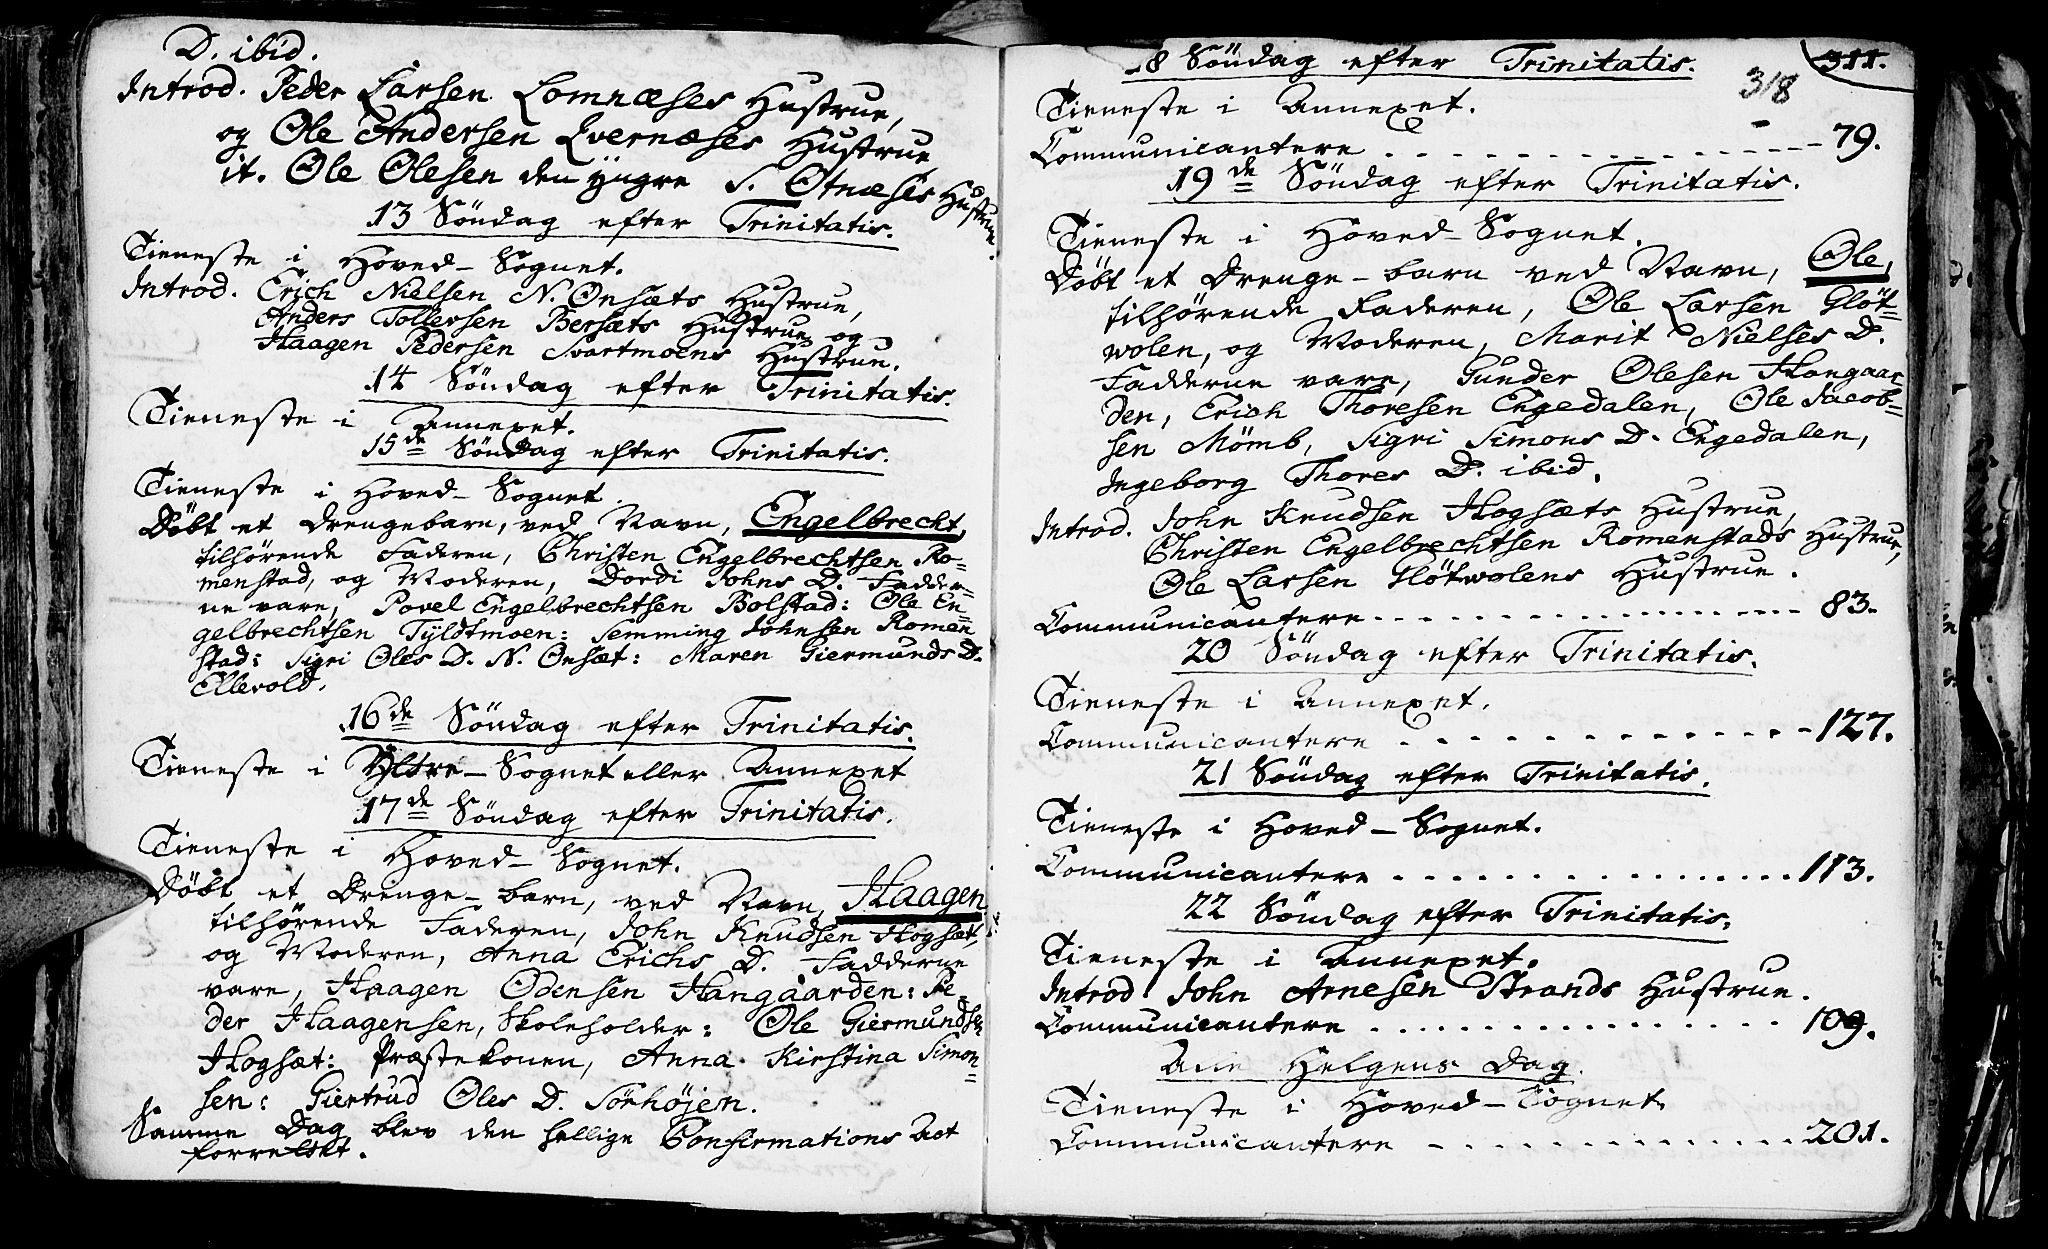 D. ibid.
Introd. Peder Larsen Lomnæses Hustrue,
og Ole Andersen Evernæses Hustrue
it. Ole Olesen den yngre S. Otnæses Hustrue.
13 Söndag efter Trinitatis.
Tieneste i Hoved-Sognet.
Introd. Erich Nielsen N. Onsæts Hustrue,
Anders Tollersen Bersæts Hustrue og
Haagen Pedersen Svartmoens Hustrue.
14 Söndag efter Trinitatis.
Tieneste i Annexet.
15de Söndag efter Trinitatis.
Tieneste i Hoved-Sognet.
Döbt et Drengebarn, ved Navn, Engelbrecht,
tilhørende Faderen, Christen Engelbrechtsen Ro=
menstad, og Moderen, Dordi Johns D. Fadder=
ne vare, Povel Engelbrechtsen Bolstad: Ole En=
gelbrechtsen Tyldtmoen: Semming Johnsen Romen
stad: Sigri Oles D. N. Onsæt: Maren Giermunds D.
Ellevold.
16de Söndag efter Trinitatis.
Tieneste i Yttre-Sognet eller Annexet
17de Söndag efter Trinitatis.
Tieneste i Hoved-Sognet.
Döbt et Drenge-barn, ved Navn, Haagen
tilhørende Faderen, John Knudsen Hogsæt,
og Moderen, Anna Erichs D. Fadderne
vare, Haagen Odensen Hangaarden: Pe=
der Haagensen, Skoleholder: Ole Giermundsen
Hogsæt: Præstekonen, Anna Kirstina Simon=
sen: Giertrud Oles D. Sörhöjen.
Samme Dag blev den hellige Confirmations Act
forrettet.
18 Söndag efter Trinitatis.
311.
318
Tieneste i Annexet.
Communicantere - - - - 79.
19de Söndag efter Trinitatis.
Tieneste i Hoved-Sognet.
Döbt et Drenge-barn ved Navn, Ole,
tilhørende Faderen, Ole Larsen Glöt=
wolen, og Moderen, Marit Nielses D.
Fadderne vare, Gunder Olesen Hangaar=
den, Erich Thoresen Engedalen, Ole Jacob=
sen Mömb, Sigri Simons D. Engedalen,
Ingeborg Thores D. ibid.
Introd. John Knudsen Hogsæts Hustrue,
Christen Engelbrechtsen Romenstads Hustrue,
Ole Larsen Glötwolens Hustrue.
Communicantere - - - - 83.
20 Söndag efter Trinitatis.
Tieneste i Annexet.
Communicantere - - - - 127.
21 Söndag efter Trinitatis.
Tieneste i Hoved-Sognet.
Communicantere - - - - 113.
22 Söndag efter Trinitatis.
Tieneste i Annexet.
Introd John Arnesen Strands Hustrue.
Communicantere - - - - 109.
Alle Helgens Dag.
Tieneste i Hoved-Sognet.
Communicantere - - - - 201.